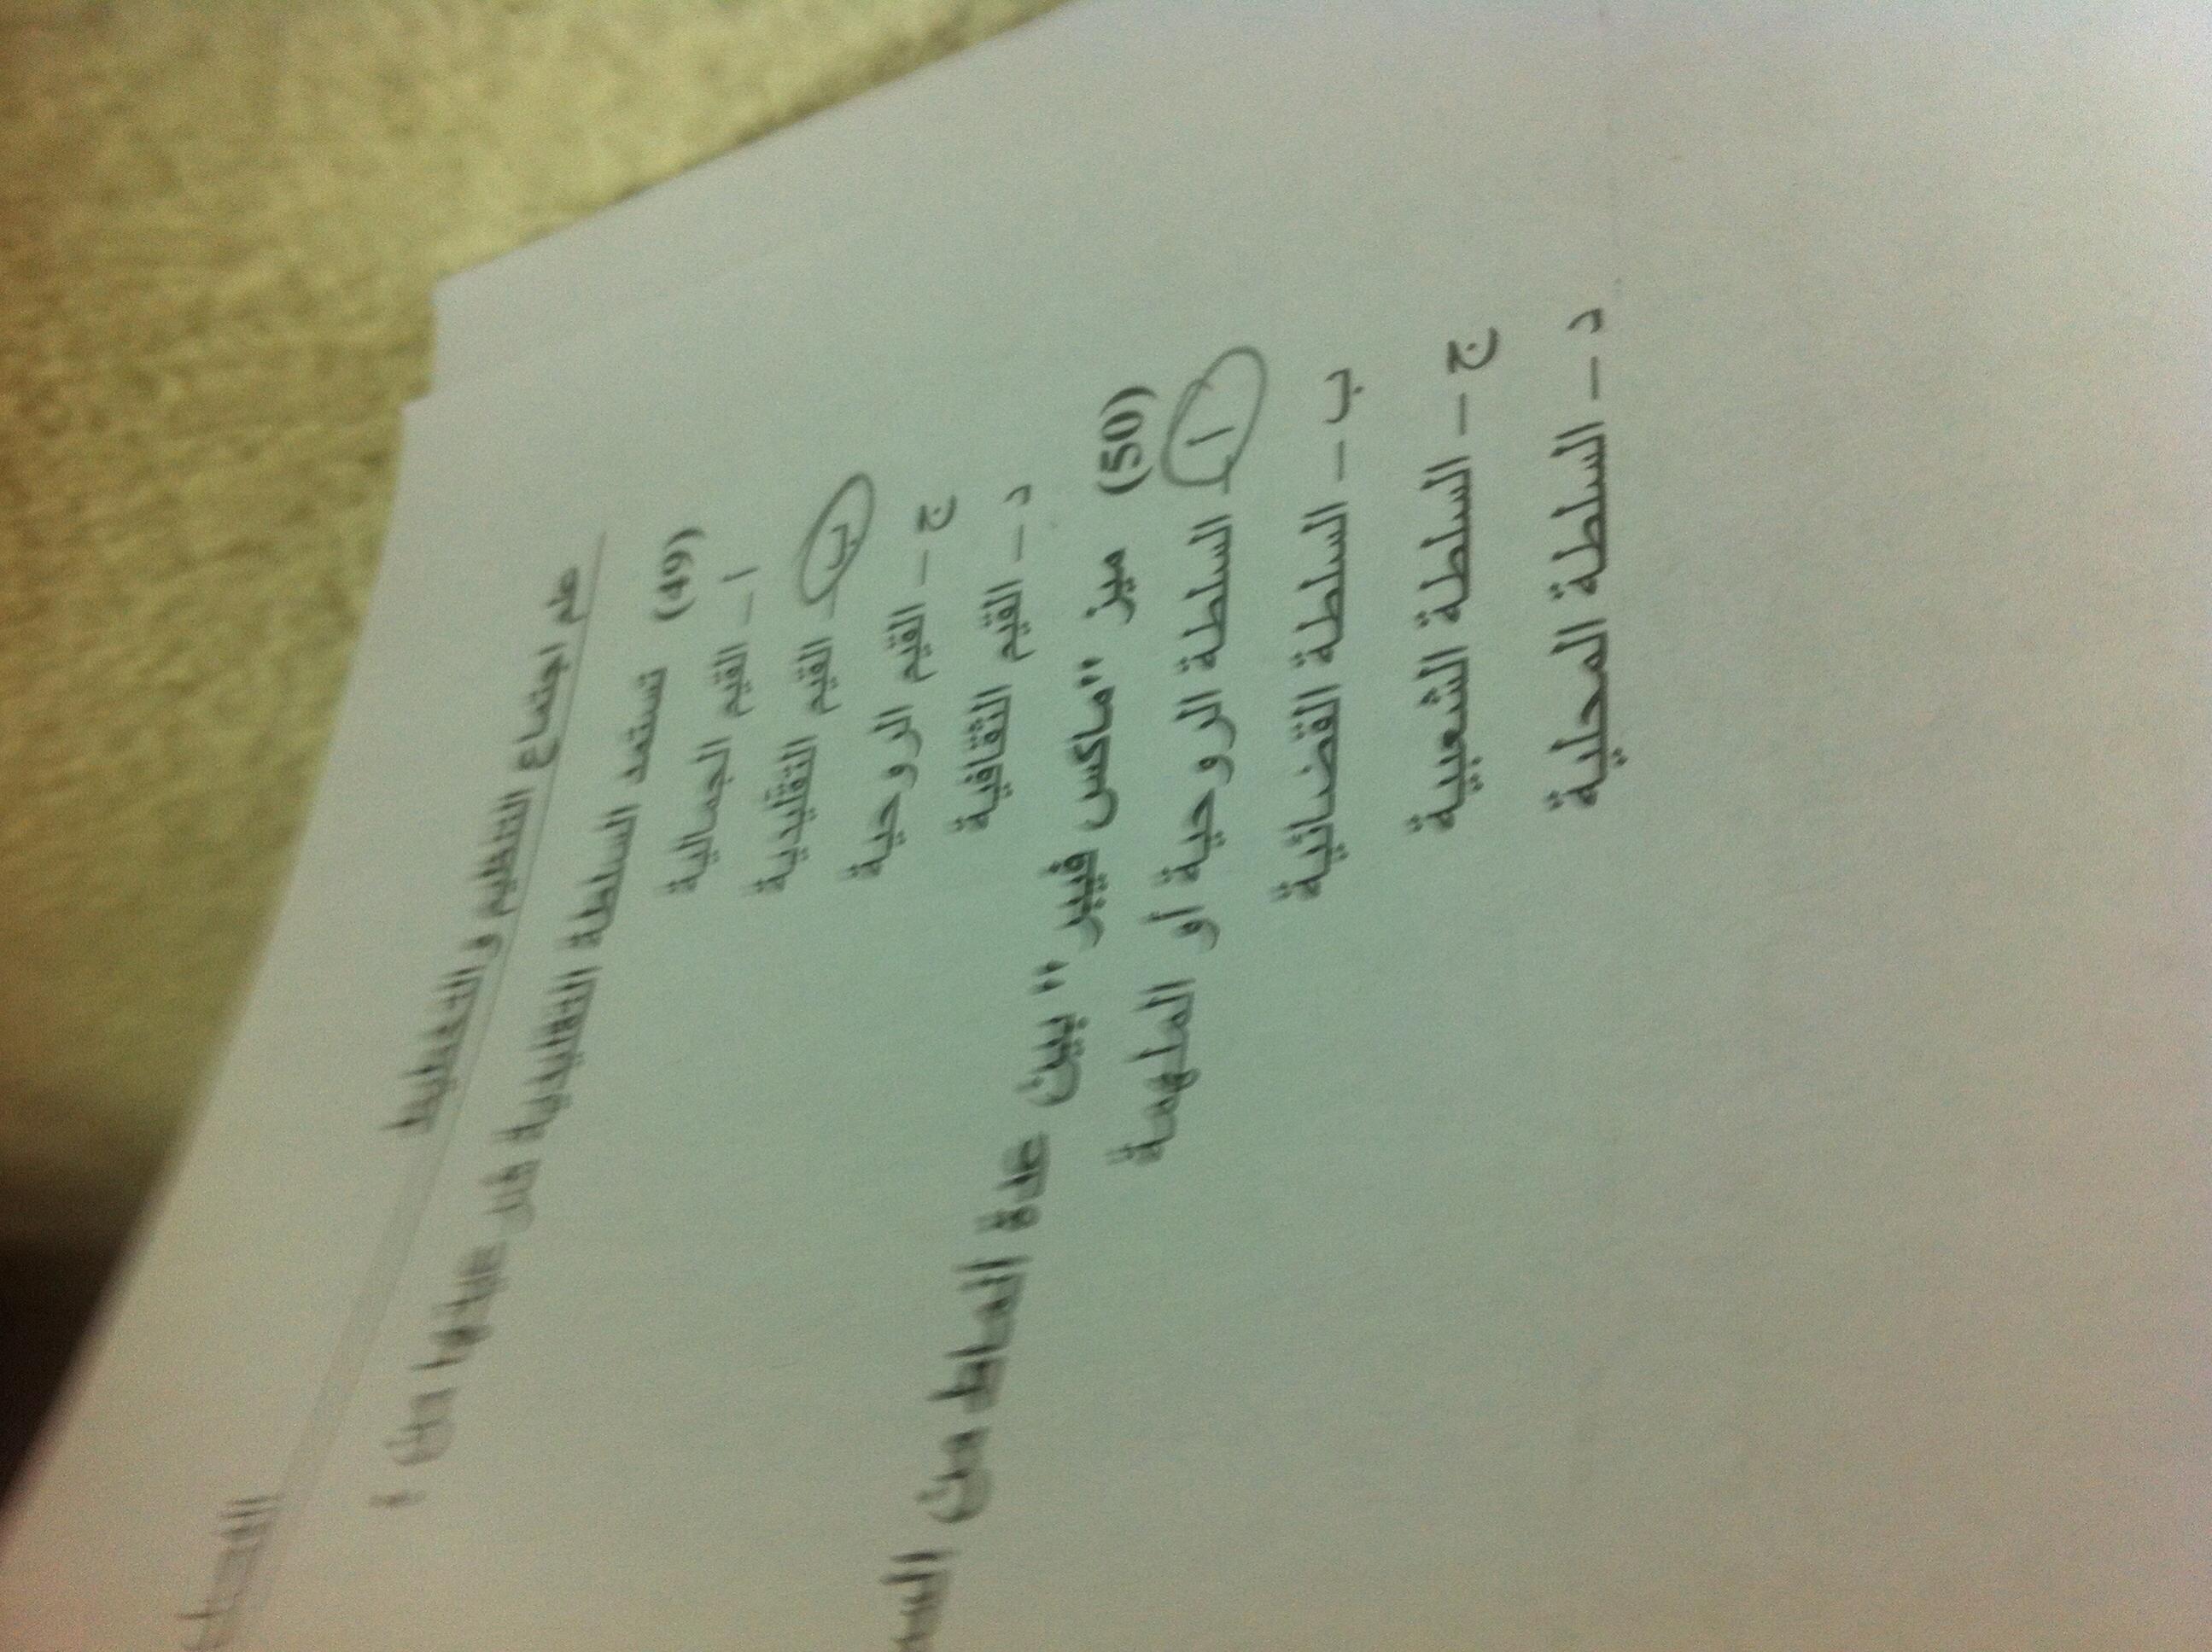 علم اجتماع التنظيم والتخطيط
(49) تستمد السلطة التقليدية قدر علاقتها من :
ا – القيم الجمالية
ب – القيم التقليدية
ج – القيم الروحية
د – القيم الثقافية
(50) ميز "ماكس فيبر" بين عدة انماط من
ا – السلطة الروحية أو الملهمة
ب – السلطة القضائية
ج – السلطة الشعبية
د – السلطة المحلية